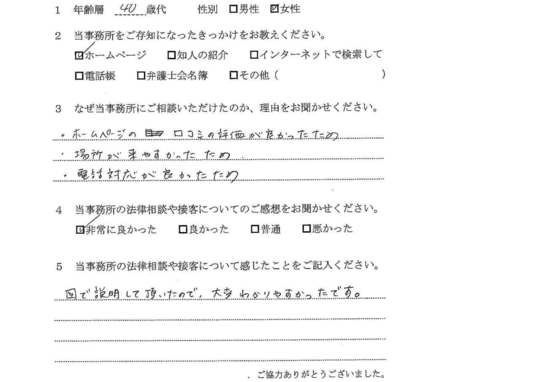 1 年齢層 40 歳代 性別 □男性 ☑女性
2 当事務所をご存知になったきっかけをお教えください。
☑ホームページ □知人の紹介 □インターネットで検索して
□電話帳 □弁護士会名簿 □その他（ ）
3 なぜ当事務所にご相談いただけたのか、理由をお聞かせください。
・ホームページの 口コミの評価が良かったため
・場所が来やすかったため
・電話対応が良かったため
4 当事務所の法律相談や接客についてのご感想をお聞かせください。
☑非常に良かった □良かった □普通 □悪かった
5 当事務所の法律相談や接客について感じたことをご記入ください。
図で説明して頂いたので、大変わかりやすかったです。
ご協力ありがとうございました。